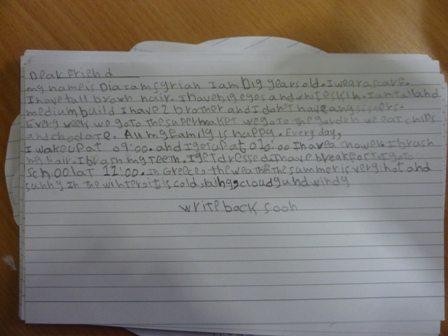 Dear Friend
my name is Diacamsyrian I am Dig years old. I wear a scare.
I have tall brown hair. I have big eges and white skin. I am tall and
medium build I have 2 brother and I don't have any sisers.
Every week we go to the supermarket we go to the garden we eat chips
and chocolate. All my family is happy. Every day,
I wake up at 09:00. and I get up at 010:00 I have a shower I brush
my hair. I brash my teem. I get dressed. I have breakfast I go to
school at 12:00. in Greece the weather the summer is very hot and
sunny in the winter it is cold, cloudy and windy
write back soon